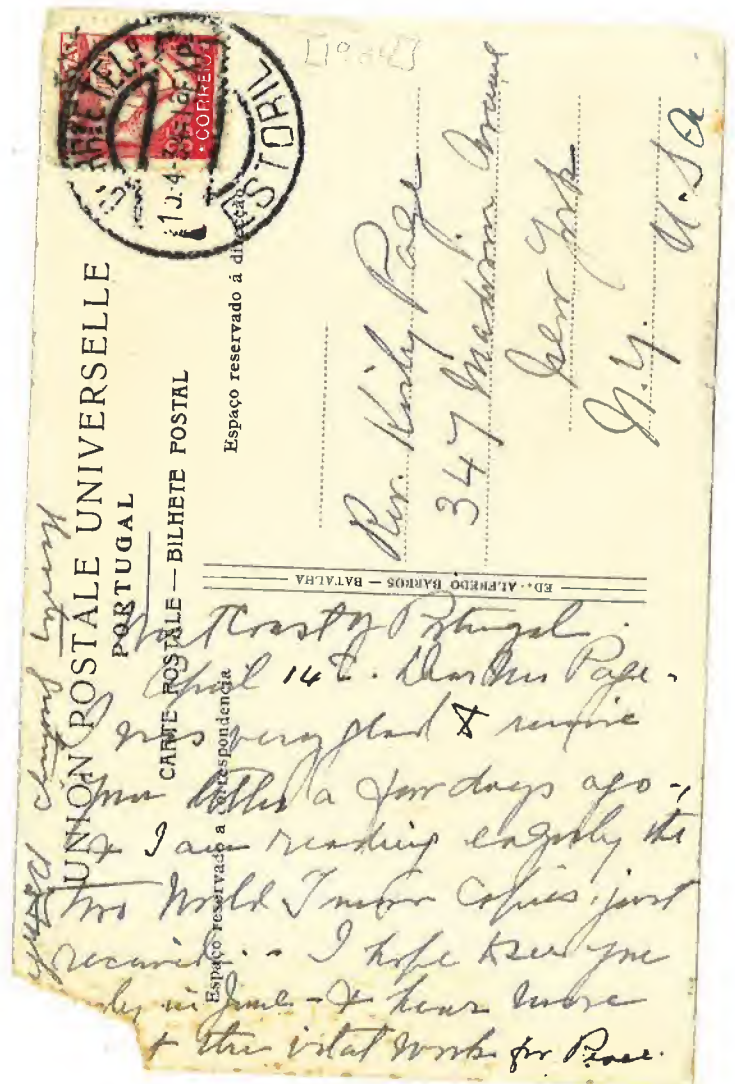 [1934]
CORREIO
ESTORIL
UNION POSTALE UNIVERSELLE
PORTUGAL
CARTE POSTALE — BILHETE POSTAL
Espaço reservado a correspondencia
Espaço reservado á direcção
ED. ALFREDO BARROS — BATALHA
Rev. Kirby Page
347 Madison Avenue
New York
N.Y. U.S.A
West Coast of Portugal.
April 14th. Dear Mr Page -
I was very glad to receive
your letter a few days ago -,
& I am reading eagerly the
two World Tomorrow Copies, just
received. - I hope to see you
in June - & hear more
the vital work for Peace.
Hearty greetings